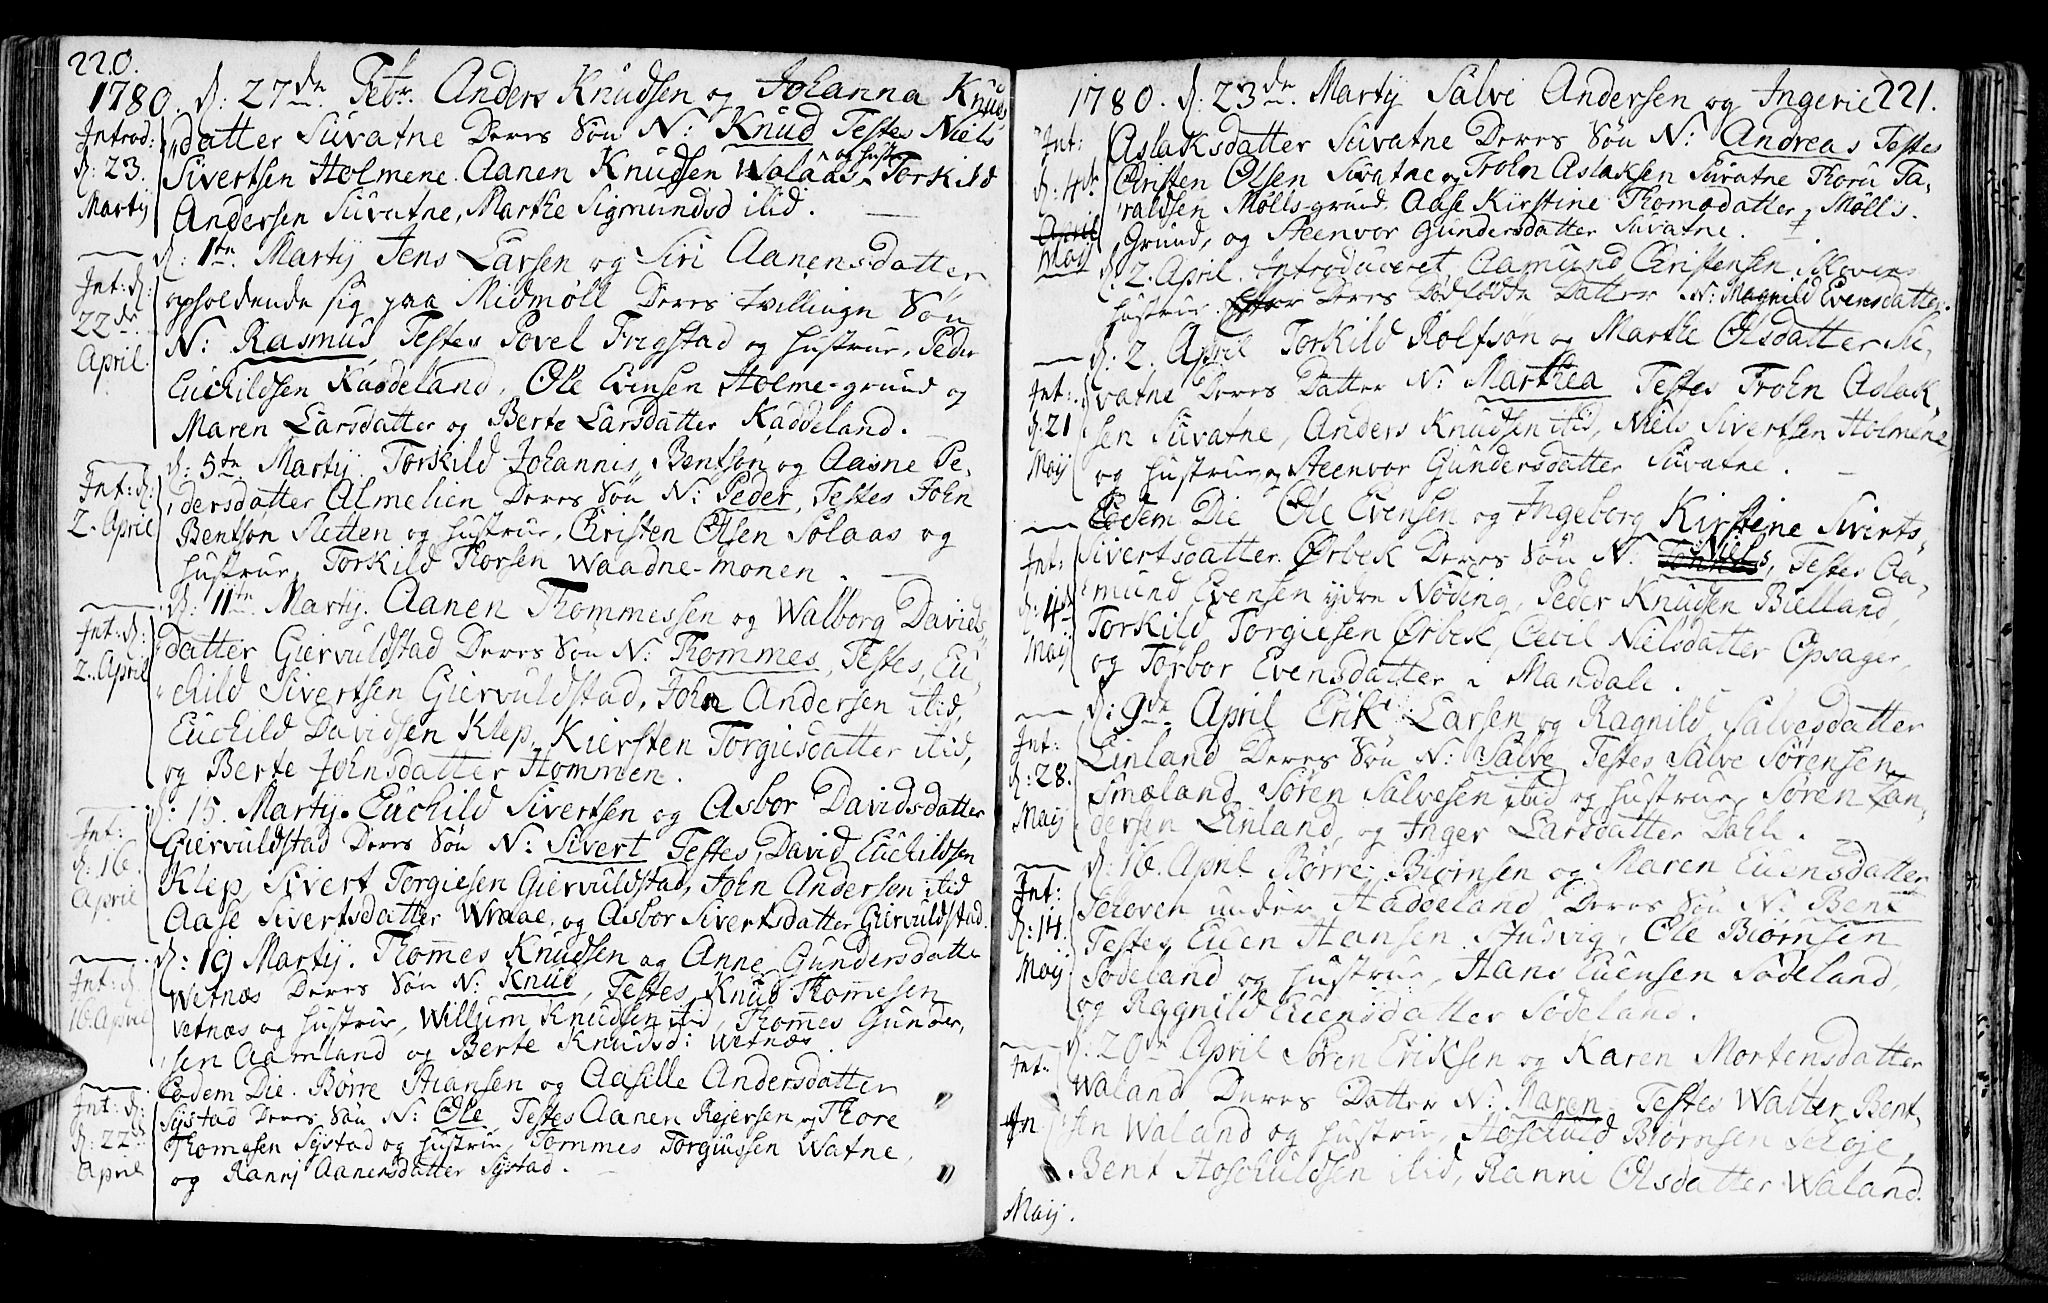 220.
1780. d: 27de Febr. Anders Knudsen og Johanna Knuds
Introd: datter Suvatne Deres Søn N: Knud Testes Niels
d: 23. Sivertsen Holmene. Aanen Knudsen Walaas og hustr Torkild
Martij Andersen Suvatne, Marthe Sigmundsd itid.
d: 1te Martij Jens Larsen og Siri Aanensdatter
Int: d: opholdende sig paa Midmøll Deres tvillinge Søn
22de N: Rasmus Testes Povel Frigstad og hustrue, Peder
April. Euchildsen Kaddeland, Ole Evensen Holme-grund og
Maren Larsdatter og Berte Larsdatter Kaddeland.
d: 5te Martij Torkild Johannis Bentson og Aasne Pe-
Int: d: dersdatter Almelien Deres Søn N: Peder, Testes John
2. April Bentson Sletten og hustrue, Christen Olsen Solaas og
hustrue, Torkild Thorsen Waadne-monen.
d: 11te Martij. Aanen Thommessen og Walborg Davids-
Int: d: datter Giervuldstad Deres Søn N: Thommes, Testes, Eu-
2. April child Sivertsen Giervuldstad, John Andersen itid,
Euchild Davidsen Klep, Kiersten Torgiusdatter itid,
og Berte Johnsdatter Hommen.
d: 15. Martij. Euchild Sivertsen og Asbor Davidsdatter
Int: Giervuldstad Deres Søn N: Sivert Testes, David Euchildsen
d: 16. Klep, Sivert Torgiesen Giervuldstad, John Andersen itid
April Aase Sivertsdatter Wraae, og Asbor Sivertsdatter Giervuldstad.
d: 19 Martij. Thomes Knudsen og Anne Gundersdatter
Int: d. Wetnæs Deres Søn N: Knud, Testes Knud Thomesen
16. April Vetnæs og hustrue, Willum Knudsen itid, Thomes Gunder-
sen Aamland og Berte Knudsd: Wetnæs.
Eodem Die. Børre Stiansen og Aasille Andersdatter
Int: d: Systad Deres Søn N: Ole Testes Aanen Rejersen og Thore
d: 22de Thomesen Systad og hustrue, Tommes Torgiussen Watne,
April og Rannj Aanensdatter Systad.
221.
1780. d: 23de Martij Salve Andersen og Ingerie
Int: Aslaksdatter Suvatne Deres Søn N: Andreas Testes
d: 4de Christen Olsen Suvatne og Trohn Aslaksen Suvatne Thoru Ta-
April raldsen Mølls-grund, Aase Kirstine Thomasdatter Mølls-
Maij Grund, og Steenvor Gundersdatter Suvatne.
d. 2. April. Introduceret Aamund Christensen Moens
hustrue efter Deres Dødfødde Datter. N: Magnild Evensdatter.
d: 2. April Torkild Rolfsøn og Marthe Olsdatter Su-
Int: vatne Deres Datter N: Marthea Testes Trohn Aslak-
d: 21 sen Suvatne, Anders Knudsen itid, Niels Sivertsen Holmene
Maij og hustrue, og Steenvor Gundersdatter Suvatne.
Eodem Die Ole Evensen og Ingeborg Kirstine Siverts-
Int: Sivertsdatter Ørbek Deres Søn N. Niels, Testes Aa-
d: 4de mund Evensen ydre Nøding, Peder Knudsen Bielland,
Maij Torkild Torgiesen Ørbek, Cecil Nielsdatter Opsager,
og Torbor Evensdatter i Mandale.
d: 9de April Erik Larsen og Ragnild Salvesdatter
Int: Einland Deres Søn N: Salve Testes Salve Sørensen
d: 28. Smæland Søren Salvesen itid og hustrue, Søren Zan-
Maij dersen Einland, og Inger Larsdatter Dahle.
d: 16. April Børre Biørnsen og Maren Euensdatter
Int: Schoven under Haddeland Deres Søn N: Bent
d: 14. Testes Euen Hansen Studvig, Ole Biørnsen
Maij Sødeland og hustrue, Hans Euensen Sødeland,
og Ragnild Euensdatter Sødeland.
d. 20de April Søren Eriksen og Karen Mortensdatter
Int: Waland Deres Datter N: Maren Testes Walter Bent-
sen Waland og hustrue, Hoschuld Biørnsen Schøje,
Bent Hoschuldsen itid, Ranni Olsdatter Waland.
Maij.